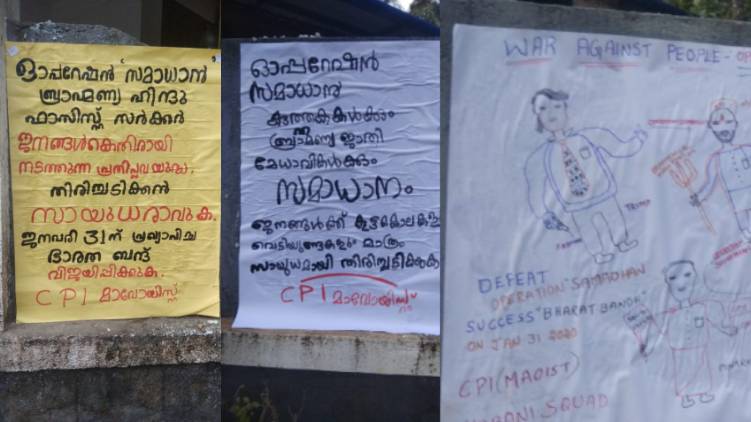 ഓപ്പറേഷൻ 'സമാധാൻ'
ബ്രാഹ്മണ്യ ഹിന്ദു
ഫാസിസ്റ്റ് സർക്കാർ
ജനങ്ങൾക്കെതിരായി
നടത്തുന്ന പ്രതിവിപ്ലവയുദ്ധം
തിരിച്ചടിക്കാൻ
സായുധരാവുക.
ജനുവരി 31ന് പ്രഖ്യാപിച്ച
ഭാരത ബന്ദ്
വിജയിപ്പിക്കുക.
CPI മാവോയിസ്റ്റ്
ഓപ്പറേഷൻ
സമാധാൻ
കുത്തകകൾക്കും
ബ്രാഹ്മണ്യ ജാതി
മേധാവികൾക്കും
സമാധാനം
ജനങ്ങൾക്ക് കൂട്ടക്കൊലകളും
വെടിയുണ്ടകളും മാത്രം
സായുധമായി തിരിച്ചടിക്കുക
CPI മാവോയിസ്റ്റ്
WAR AGAINST PEOPLE - "OP
TRUMP
DEFEAT
OPERATION "SAMADHAN
SUCCESS "BHARAT BANDH"
ON JAN 31 2020
CPI (MAOIST)
BANI SQUAD